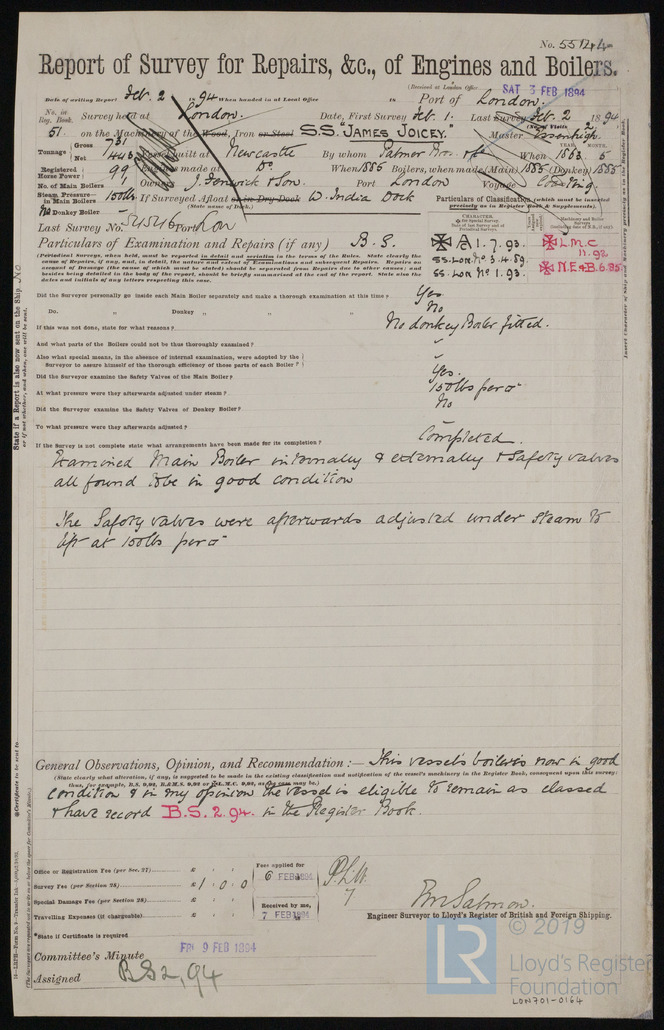 No. 55124
Report of Survey for Repairs, &c., of Engines and Boilers.
(Received at London Office SAT 3 FEB 1894
Date of writing Report Feb. 2 1894 When handed in at Local Office 18 Port of London.
No. in Reg. Book. Survey held at London. Date, First Survey Feb. 1. Last Survey Feb. 2 1894
51. on the Machinery of the Wood, Iron or Steel S.S. "JAMES JOICEY." Master
Tonnage Gross 731 Net 443 Vessel built at Newcastle By whom Palmer Bros. & Co When 1863. 5
Registered Horse Power 99 Engines made at Do. When 1885 Boilers, when made (Main) 1885 (Donkey) 1885
No. of Main Boilers Owners J. Fenwick & Son. Port London Voyage Coasting.
Steam Pressure in Main Boilers 150lbs If Surveyed Afloat or in Dry Dock W. India Dock
(State name of Dock.)
No Donkey Boiler –
Particulars of Classification (which must be inserted precisely as in Register Book & Supplements).
Last Survey No. 54546 Port Lon
Particulars of Examination and Repairs (if any) B.S.
A 1. 7. 93.
SS. Lon. No 3. 4. 89.
SS. Lon No 1. 93.
L.M.C 11.92
N.E&B. 6.85
(Periodical Surveys, when held, must be reported in detail and seriatim in the terms of the Rules. State clearly the cause of Repairs, if any, and, in detail, the nature and extent of Examinations and subsequent Repairs. Repairs on account of Damage (the cause of which must be stated) should be separated from Repairs due to other causes; and besides being detailed in the body of the report, should be briefly summarised at the end of the report. State also the dates and initials of any letters respecting this case.
Did the Surveyor personally go inside each Main Boiler separately and make a thorough examination at this time? Yes
Do. " Donkey " " " No
If this was not done, state for what reasons? No donkey Boiler fitted.
And what parts of the Boilers could not be thus thoroughly examined? –
Also what special means, in the absence of internal examination, were adopted by the Surveyor to assure himself of the thorough efficiency of those parts of each Boiler? –
Did the Surveyor examine the Safety Valves of the Main Boiler? Yes.
At what pressure were they afterwards adjusted under steam? 150lbs per □"
Did the Surveyor examine the Safety Valves of Donkey Boiler? No
To what pressure were they afterwards adjusted? –
If the Survey is not complete state what arrangements have been made for its completion? Completed.
Examined Main Boiler internally & externally & Safety valves
all found to be in good condition
The Safety valves were afterwards adjusted under steam to
lift at 150lbs per □"
General Observations, Opinion, and Recommendation :— This vessel's boiler is now in good
(State clearly what alteration, if any, is suggested to be made in the existing classification and notification of the vessel's machinery in the Register Book, consequent upon this survey: thus, for example, B.S. 9,94, B.&M.S. 9,94 or L.M.C. 9,94, as the case may be.)
condition & in my opinion the vessel is eligible to remain as classed
& have record B.S. 2. 94. in the Register Book.
Office or Registration Fee (per Sec. 27) £
Survey Fee (per Section 28) £ 1 . 0 . 0
Special Damage Fee (per Section 28) £
Travelling Expenses (if chargeable) £
Fees applied for
6 FEB 1894
Received by me,
7 FEB 1894
*State if Certificate is required
R M Salmon.
Engineer Surveyor to Lloyd's Register of British and Foreign Shipping.
Committee's Minute FRI 9 FEB 1894
Assigned B S 2, 94
State if a Report is also now sent on the Ship. No
or if not whether, and when, one will be sent.
Insert Character of Ship and Machinery precisely as in the Register Book.
*Certificate to be sent to
© 2019
LR
Lloyd's Register
Foundation
LON701-0164